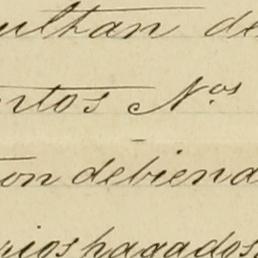 ultan de
ntos Nos
on debiend
rios pagados